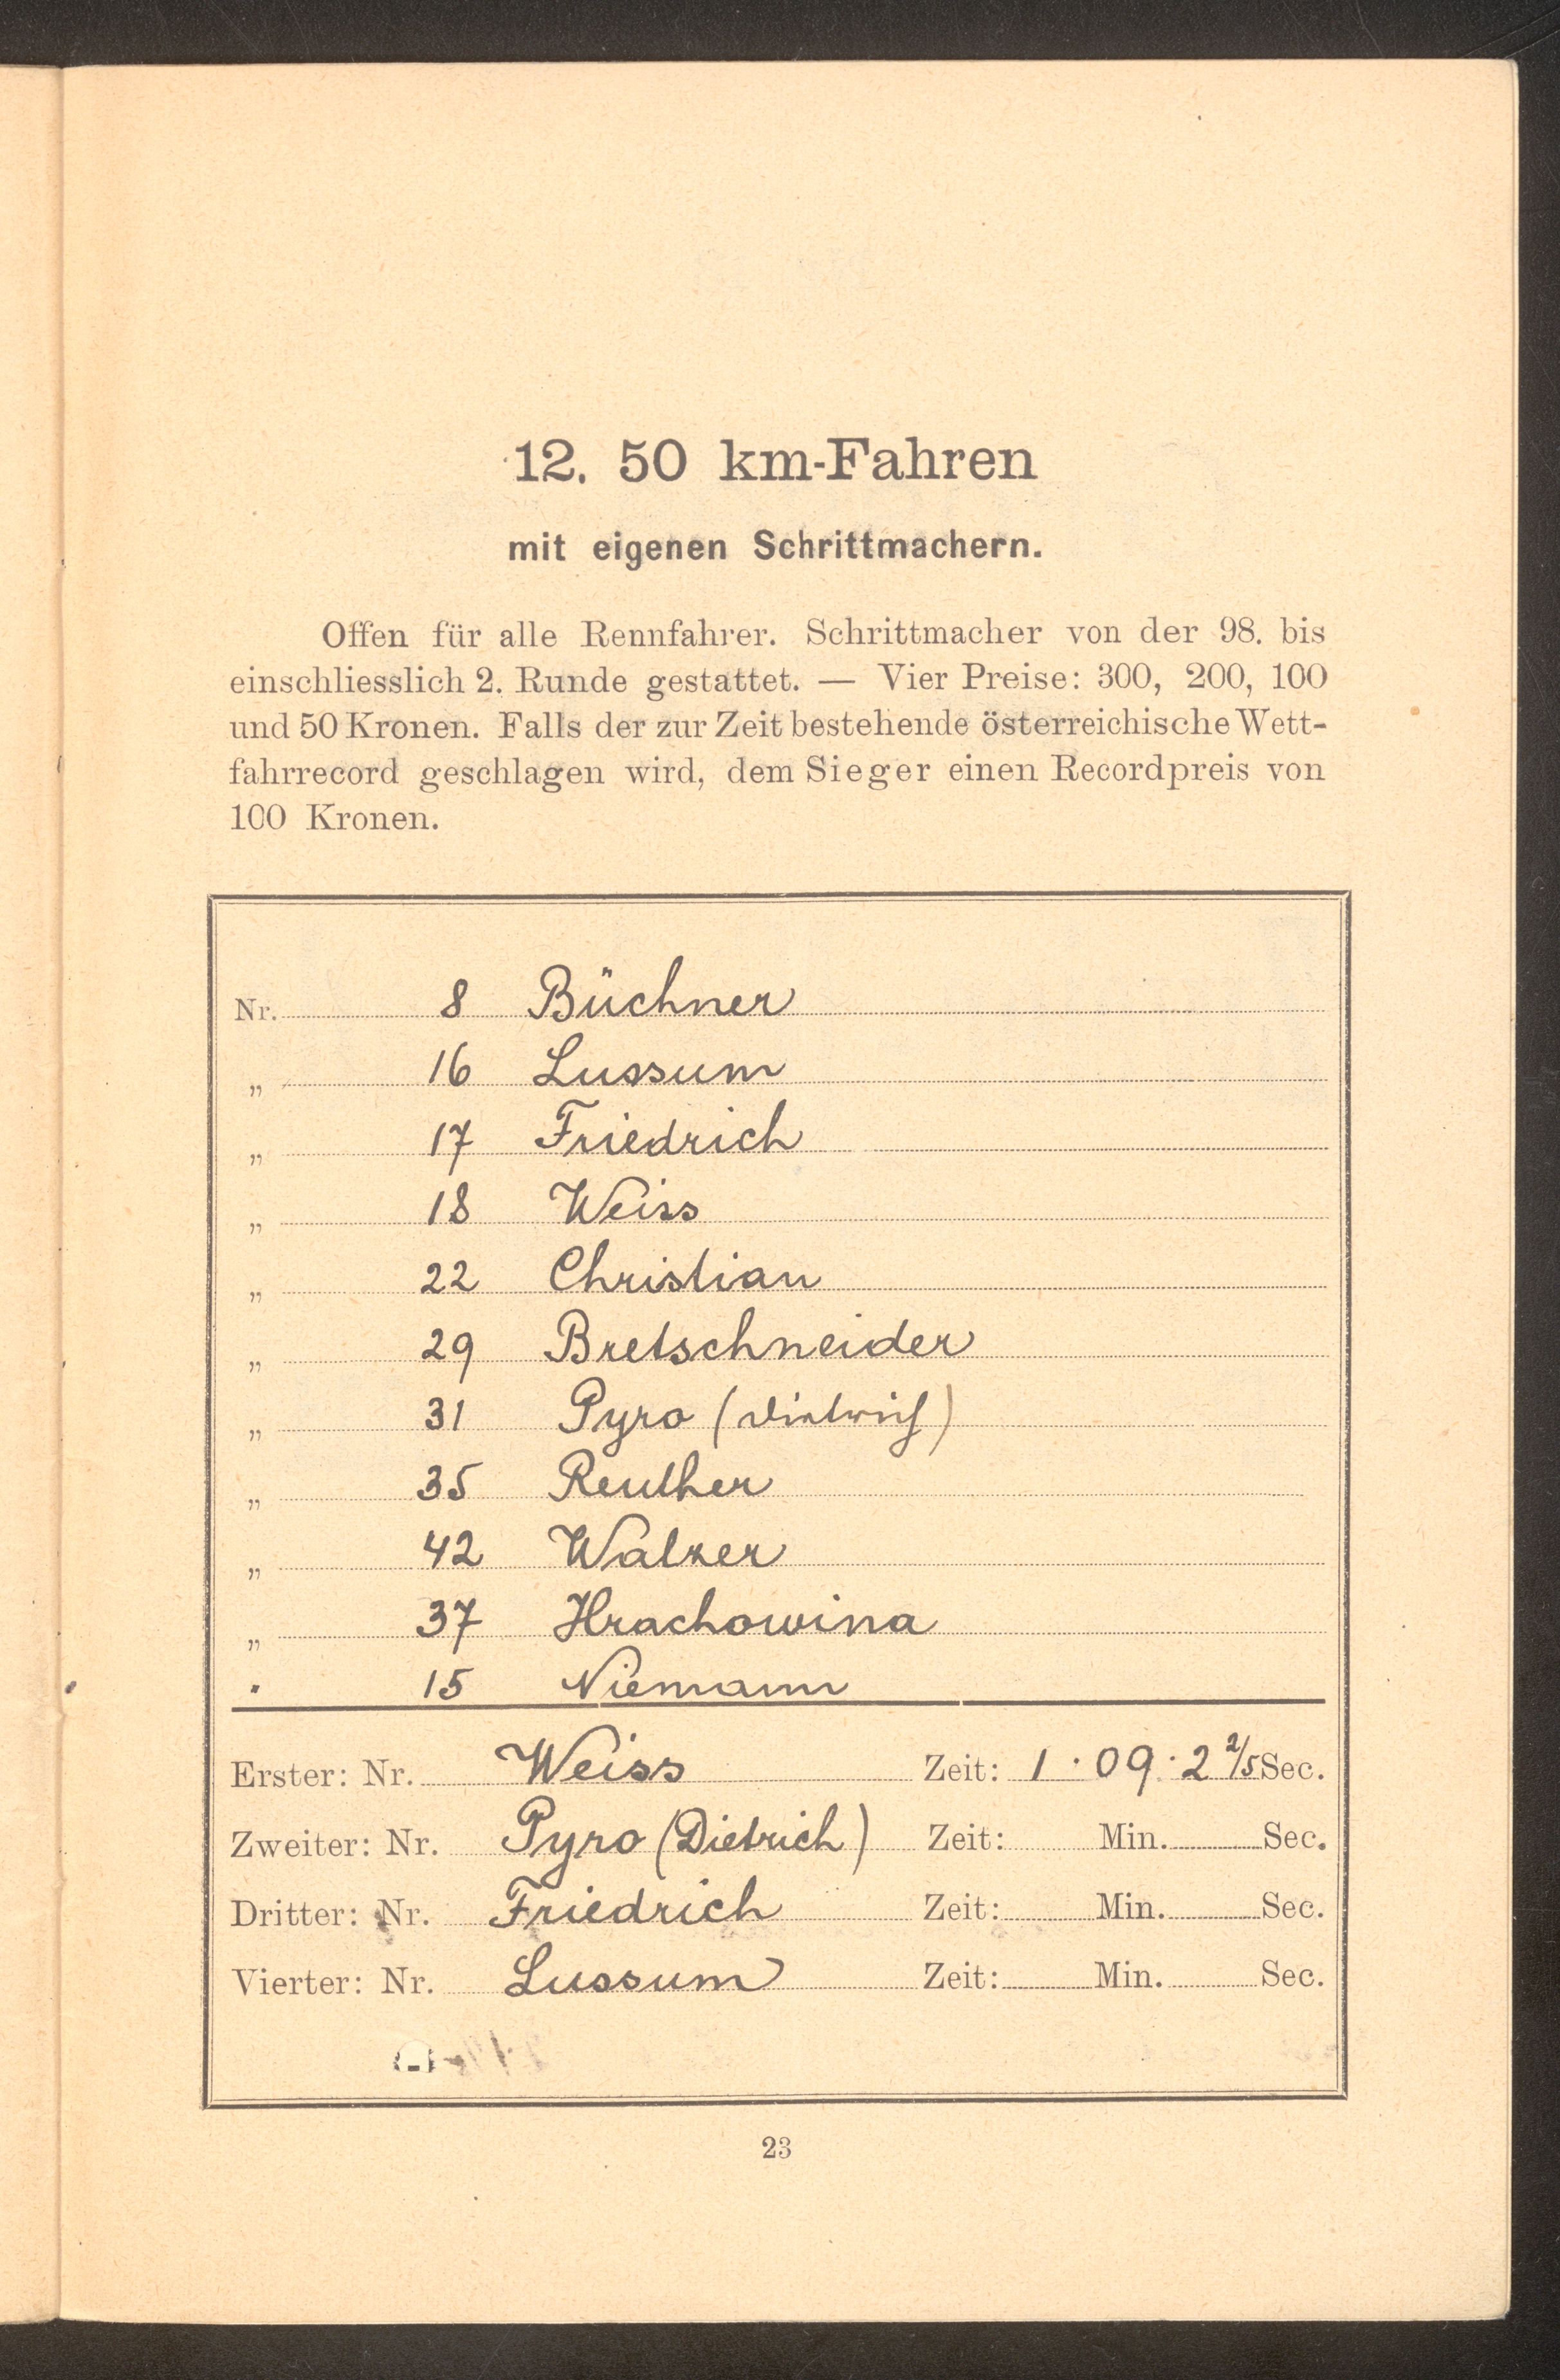 12. 50 km-Fahren
mit eigenen Schrittmachern.
Offen für alle Rennfahrer. Schrittmacher von der 98. bis
einschliesslich 2. Runde gestattet. — Vier Preise: 300, 200, 100
und 50 Kronen. Falls der zur Zeit bestehende österreichische Wett-
fahrrecord geschlagen wird, dem Sieger einen Recordpreis von
100 Kronen.
Nr. 8 Büchner
„ 16 Lussum
„ 17 Friedrich
„ 18 Weiss
„ 22 Christian
„ 29 Bretschneider
„ 31 Pyro (Dietrich)
„ 35 Reuther
„ 42 Walzer
„ 37 Hrachowina
" 15 Niemann
Erster: Nr. Weiss Zeit: 1 · 09 · 2 2/5 Sec.
Zweiter: Nr. Pyro (Dietrich) Zeit: Min. Sec.
Dritter: Nr. Friedrich Zeit: Min. Sec.
Vierter: Nr. Lussum Zeit: Min. Sec.
23